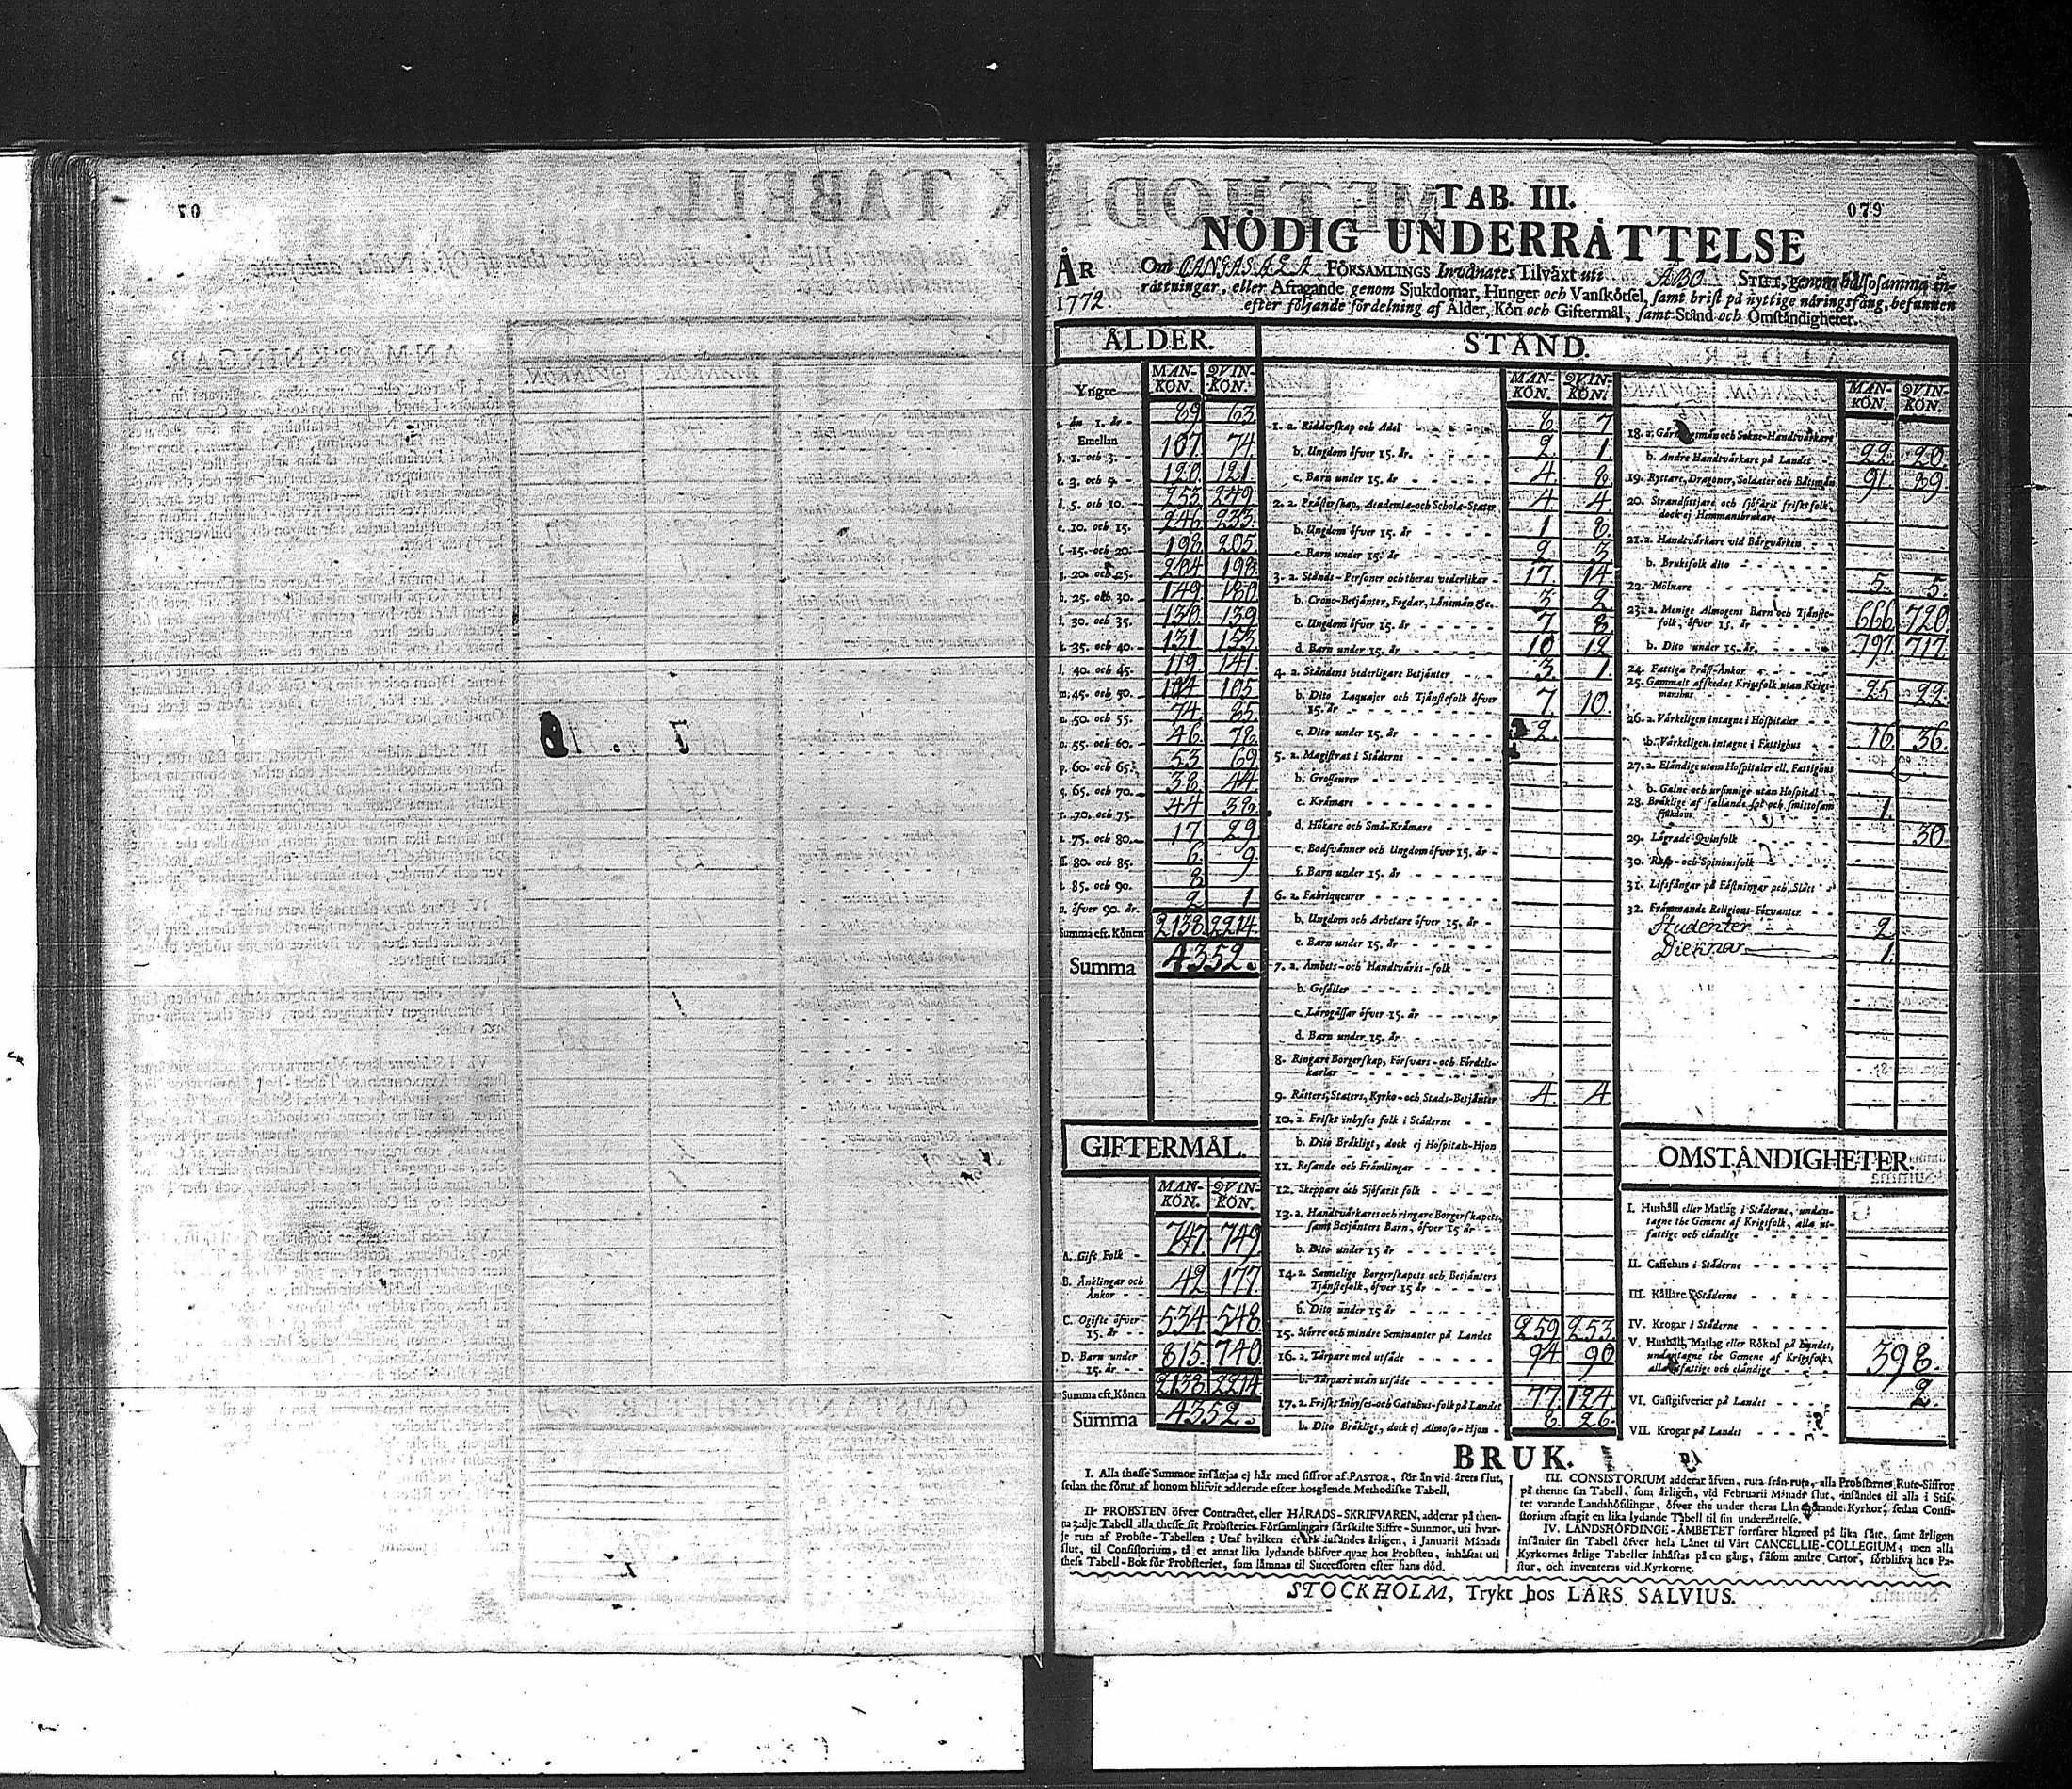 TAB. III.
079
NÖDIG UNDERRÅTTELSE
ÅR 1772
Om CANGASALA FÖRSAMLINGS Invånares Tilväxt uti ÅBO STIFT, genom hälsosamma in-
råttningar, eller Aftagande genom Sjukdomar, Hunger och Vanskötsel, samt brist på nyttige näringsfång, befunnen
efter följande fördelning af Ålder, Kön och Giftermål, samt Stånd och Omständigheter.
ÅLDER.
MAN-KÖN. QVIN-KÖN.
Yngre
än 1. år - 89 63
Emellan
b. 1. och 3. - 107 74
c. 3. och 5. - 120 121
d. 5. och 10. - 253 249
e. 10. och 15. 246 233
f. 15. och 20. 198 205
g. 20. och 25. 204 198
h. 25. och 30. 149 180
i. 30. och 35. 130 139
k. 35. och 40. 131 153
l. 40. och 45. 119 141
m. 45. och 50. 104 105
n. 50. och 55. 74 85
o. 55. och 60. 46 78
p. 60. och 65. 53 69
q. 65. och 70. 38 44
r. 70. och 75. 44 38
s. 75. och 80. 17 29
ss. 80. och 85. 6 9
t. 85. och 90. 8
u. öfver 90. år. 2 1
Summa eft. Könen 2138 2214
Summa 4352.
GIFTERMÅL.
MAN-KÖN. QVIN-KÖN.
A. Gift Folk - 747 749
B. Änklingar och Änkor - 42 177
C. Ogifte öfver 15. år - - 534 548
D. Barn under 15. år - - 815 740
Summa eft. Könen 2138 2214
Summa 4352.
STÅND.
MAN-KÖN. QVIN-KÖN.
1. a. Ridderskap och Adel 8 7
b. Ungdom öfver 15. år. 2 1
c. Barn under 15. år 4 8
2. a. Prästerskap, Academiæ-och Scholæ-Stater 4 4
b. Ungdom öfver 15. år 1 8
c. Barn under 15. år 2 3
3. a. Stånds-Personer och theras vederlikar - 17 14
b. Crono-Betjänter, Fogdar, Länsmän &c. 3 2
c. Ungdom öfver 15. år 7 8
d. Barn under 15. år 10 12
4. a. Ståndens hederligare Betjänter 3 1
b. Dito Laquajer och Tjänstefolk öfver 15. år 7 10
c. Dito under 15. år 2
5. a. Magistrat i Städerne
b. Grosseurer
c. Krämare
d. Hökare och Små-Krämare
e. Bodsvänner och Ungdom öfver 15. år -
f. Barn under 15. år
6. a. Fabriqueurer
b. Ungdom och Arbetare öfver 15. år
c. Barn under 15. år
7. a. Ämbets-och Handtvärks-folk
b. Gesäller
c. Lärogåssar öfver 15. år
d. Barn under 15. år
8. Ringare Borgerskap, Försvars-och Fördels-karlar
9. Rätters, Staters, Kyrko-och Stads-Betjänter 4 4
10. a. Friskt inhyses folk i Städerne
b. Dito Bräkligt, dock ej Hospitals-Hjon
11. Resande och Främlingar
12. Skeppare och Sjöfarit folk
13. a. Handtvärkares och ringare Borgerskapets, samt Betjänters Barn, öfver 15 år
b. Dito under 15 år
14. a. Samtelige Borgerskapets och Betjänters Tjänstefolk, öfver 15 år
b. Dito under 15 år
15. Större och mindre Heminanter på Landet 259 253
16. a. Torpare med utsäde 94 90
b. Torpare utan utsäde
17. a. Friskt Inhyses-och Gatuhus-folk på Landet 77 124
b. Dito Bräkligt, dock ej Almoso-Hjon - 8 26
MAN-KÖN. QVIN-KÖN.
18. a. Gärningsmän och Sokne-Handtvärkare
b. Andre Handtvärkare på Landet 22 20
19. Ryttare, Dragoner, Soldater och Båtsmän 91 89
20. Strandsittjare och sjöfarit friskt folk, dock ej Hemmansbrukare
21. a. Handtvärkare vid Bärgvärken
b. Bruksfolk dito
22. Mölnare 5 5
23. a. Menige Almogens Barn och Tjänste-folk, öfver 15. år 666 720
b. Dito under 15. år. 797 717
24. Fattiga Präst-Änkor
25. Gammalt afskedat Krigsfolk utan Krigsmanshus 25 22
26. a. Värkeligen intagne i Hospitaler
b. Värkeligen intagne i Fattighus 16 36
27. a. Eländige utom Hospitaler ell. Fattighus
b. Galne och ursinnige utan Hospital
28. Bräklige af fallande sot och smittosam sjukdom 1
29. Lägrade Qvinfolk 30
30. Rasp-och Spinhusfolk
31. Lifsfångar på Fästningar och Slått
32. Främmande Religions-Förvanter
Studenter 2
Dieknar 1
OMSTÄNDIGHETER.
I. Hushåll eller Matlag i Städerne, undantagne the Gemene af Krigsfolk, alla utfattige och eländige
II. Caffehus i Städerne
III. Källare i Städerne
IV. Krogar i Städerne
V. Hushåll, Matlag eller Röktal på Landet, undantagne the Gemene af Krigsfolk, alla utfattige och eländige 398.
VI. Gästgifverier på Landet 2.
VII. Krogar på Landet
BRUK.
I. Alla thesse Summor insättjas ej här med siffror af PASTOR, för än vid årets slut,
sedan the förut af honom blifvit adderade efter hosgående Methodiske Tabell.
II. PROBSTEN öfver Contractet, eller HÄRADS-SKRIFVAREN, adderar på then-
na 3:dje Tabell alla thesse sit Probsteries Församlingars särskilte Siffre-Summor, uti hvar-
je ruta af Probste-Tabellen: Utaf hvilken et ark insändes årligen, i Januarii Månads
slut, til Consistorium, tå et annat lika lydande blifver qvar hos Probsten, inhäftat uti
thess Tabell-Bok för Probsteriet, som lämnas til Successoren efter hans död.
III. CONSISTORIUM adderar äfven, ruta från ruta, alla Probstarnes Rute-Siffror
på thenne sin Tabell, som årligen, vid Februarii Månads slut, insändes til alla i Stif-
tet varande Landshöfdingar, öfver the under theras Län hörande Kyrkor, sedan Consi-
storium aftagit en lika lydande Tabell til sin underrättelse.
IV. LANDSHÖFDINGE-ÄMBETET fortfarer härmed på lika sätt, samt årligen
insänder sin Tabell öfver hela Länet til Vårt CANCELLIE-COLLEGIUM; men alla
Kyrkornes årlige Tabeller inhäftas på en gång, såsom andre Cartor, förblifva hos Pa-
stor, och inventeras vid Kyrkorne.
STOCKHOLM, Trykt hos LARS SALVIUS.